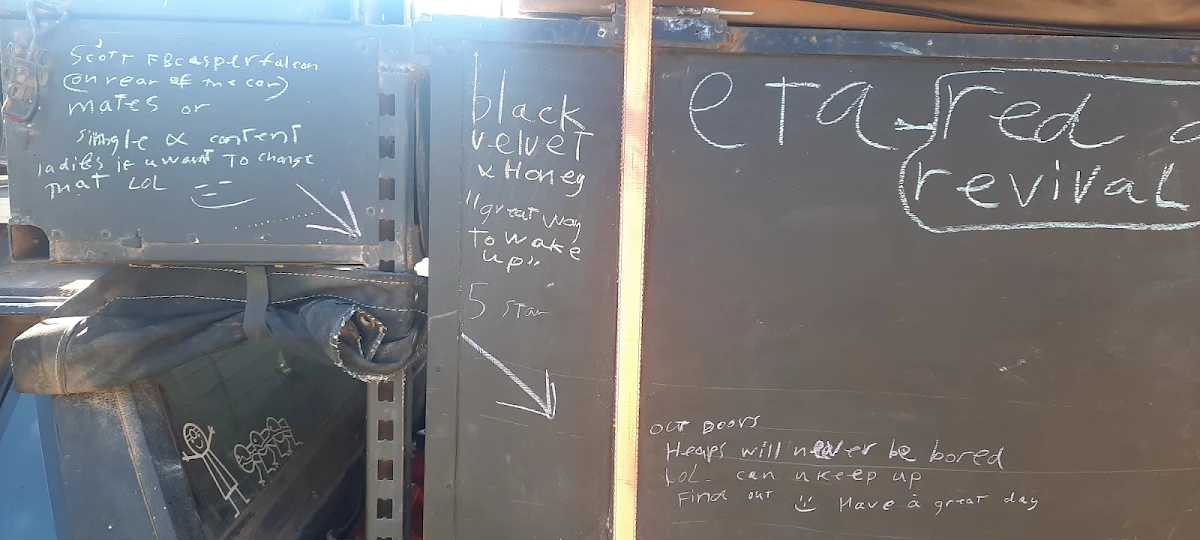 Scott FBcasperfalcon
(on rear of the car)
mates or
single & content
ladies if u want to change
that LOL
black
velvet
& Honey
"great way
to wake
up"
5 star
eTa red
revival
out doors
Heaps will never be bored
LOL. can u keep up
Find out Have a great day